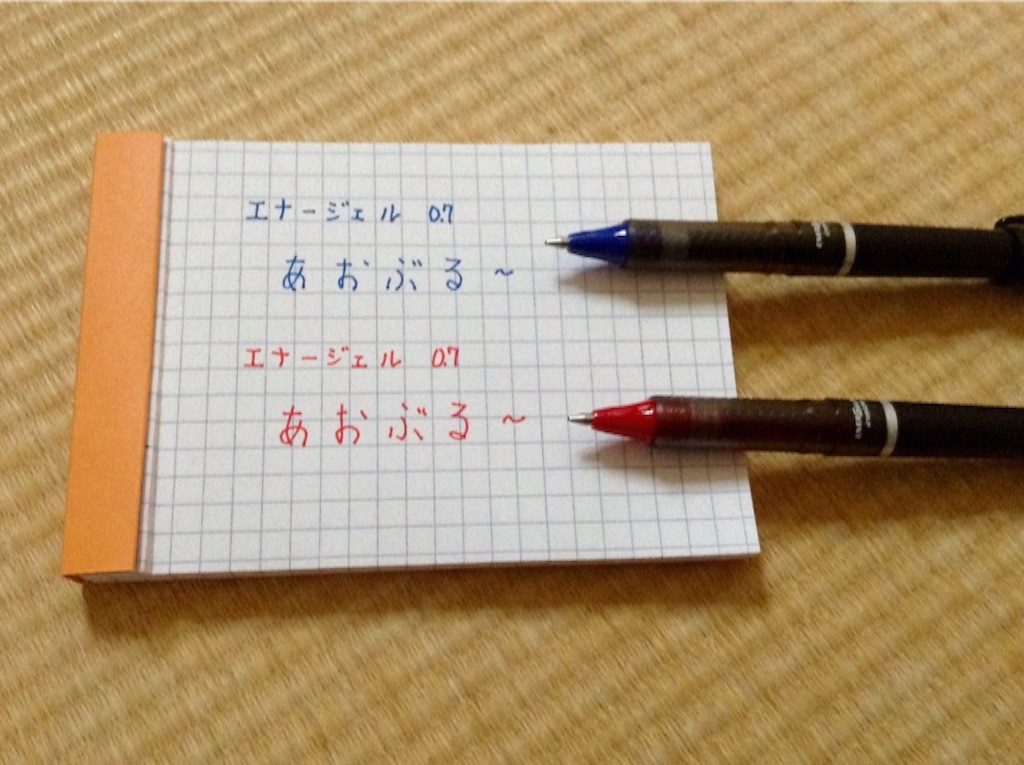 エナージェル 0.7
あおぶる〜
エナージェル 0.7
あおぶる〜